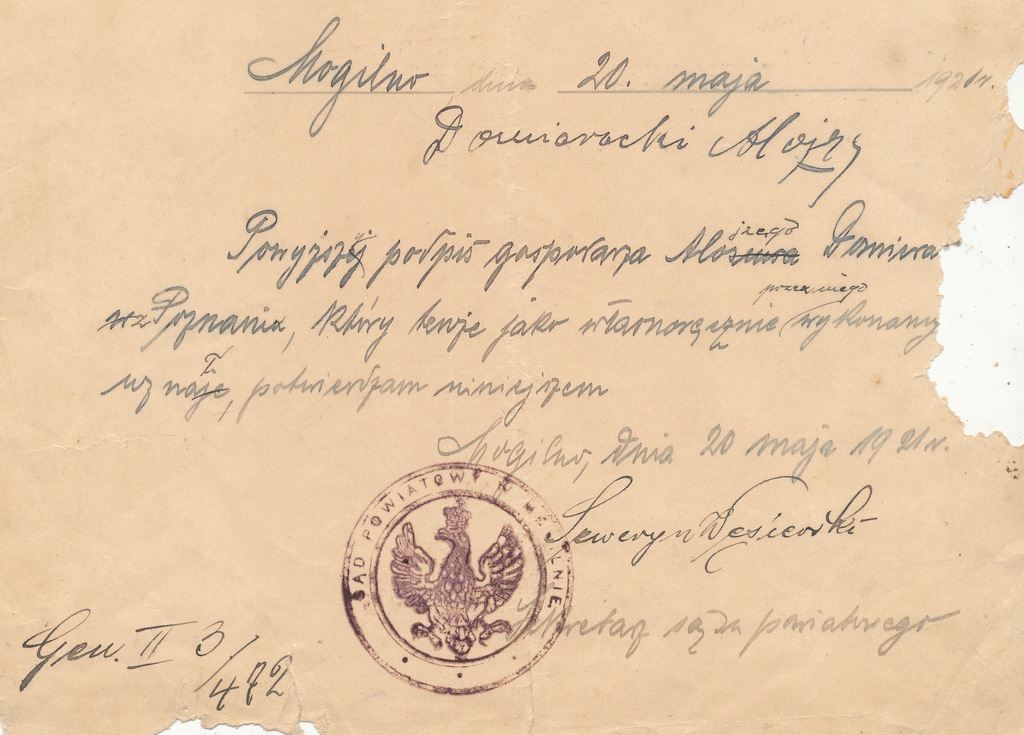 Mogilno, dnia 20. maja 1921r.
Domieracki Alojzy
jzego
Powyższy podpis gospodarza Alo Domiera
przez niego
z Poznania, który tenże jako własnoręcznie wykonany
uznaje, potwierdzam niniejszem
Mogilno, dnia 20 maja 1921r.
SĄD POWIATOWY W MOGILNIE
Seweryn
Sekretarz sądu powiatowego
Gen. II 3/472